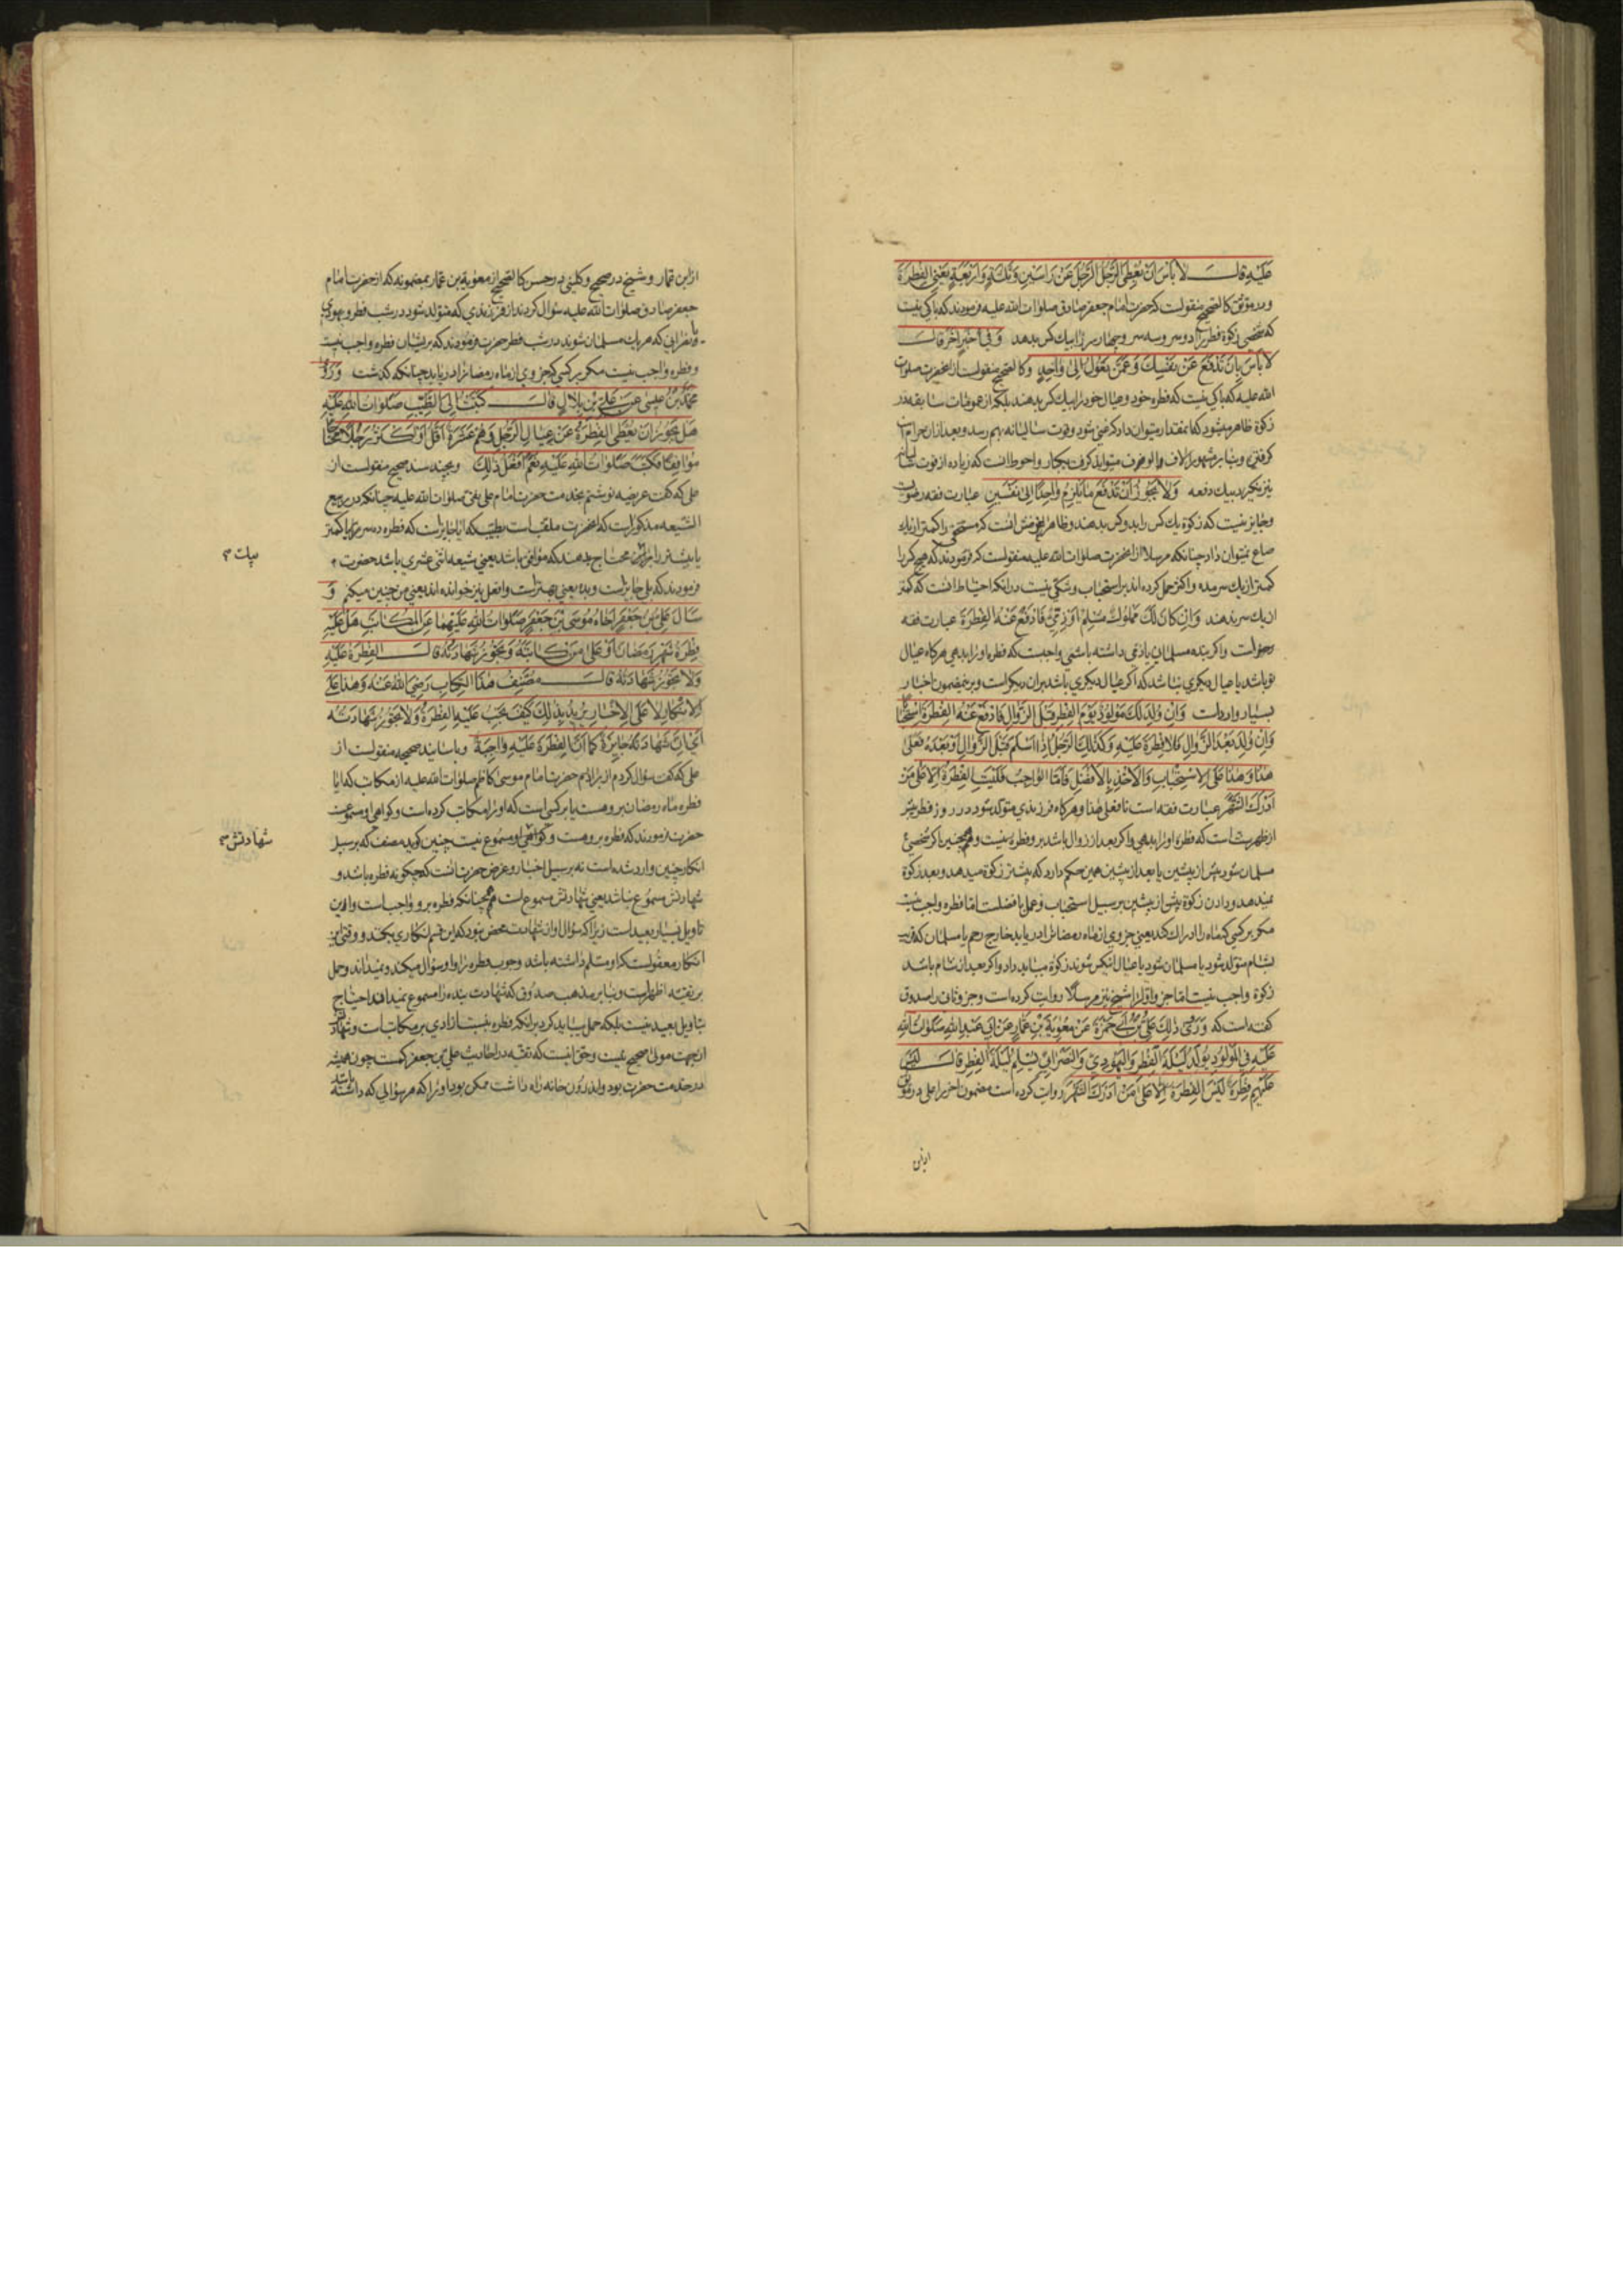 عَلَیْهِ قالَ لاَ بَأْسَ اَنْ یُعْطِیَ الرَّجُلُ الرَّجُلَ عَنْ رَاسَیْنِ وَثَلٰثَةٍ وَاَرْبَعَةٍ یَعْنِی الْفِطْرَةَ
ودر موثق کالصحیح منقولست که حضرت امام جعفر صادق صلوات الله علیه فرمودند که باکی نیست
که شخصی زکوة فطر را از دو سر وسه سر وچهار سر را بیك کس بدهد وَفِی خَبَرٍ اٰخَرَ قالَ
لاَ بَاْسَ بِاَنْ تَدْفَعَ عَنْ نَفْسِكَ وَعَمَّنْ تَعُولُ اِلیٰ وَاحِدٍ وکالصحیح منقولست از آنحضرت صلوات
الله علیه که باکی نیست که فطره خود وعیال خود را بیك کس بدهند بلکه از عمومات سابقه در
زکوة ظاهر میشود که آنمقدار میتوان داد که غنی شود وقوت سالیانه بهم رسد وبعد از آن حرام است
کرفتن وبنابر مشهور الاف والوف میتواند کرفت بیکبار واحوط آنست که زیاده از قوت سالیانه
نیز نکیرد بیك دفعه وَلاَ یَجُوزُ اَنْ تَدْفَعَ مَا یَلْزَمُ وَاحِدًا اِلیٰ نَفْسَیْنِ عبارت فقه رضویست
وجایز نیست که زکوة یك کس را بدو کس بدهند وظاهرا غرضش آنست که مستحقی را کمتر از یك
صاع نمیتوان داد چنانکه مرسلا از آنحضرت صلوات الله علیه منقولست که فرمودند که هیچ کس را
کمتر از یك سر مده واکثر حمل کرده اند بر استحباب وشکی نیست در آنکه احتیاط آنست که کمتر
از یك سر ندهند وَاِنْ کَانَ لَكَ مَمْلُوكٌ مُسْلِمٌ اَوْ ذِمِّیٌّ فَادْفَعْ عَنْهُ الْفِطْرَةَ عبارت فقه
رضویست واکر بنده مسلمان یا ذمی داشته باشی واجبست که فطره او را بدهی هرکاه عیال
تو باشد یا عیال دیکری نباشد که اکر عیال دیکری باشد بر آن دیکر است وبر این مضمون اخبار
بسیار وارد است وَاِنْ وُلِدَ لَكَ مَوْلُودٌ یَوْمَ الْفِطْرِ قَبْلَ الزَّوَالِ فَادْفَعْ عَنْهُ الْفِطْرَةَ اسْتِحْبَابًا
وَاِنْ وُلِدَ بَعْدَ الزَّوَالِ فَلاَ فِطْرَةَ عَلَیْهِ وَکَذٰلِكَ الرَّجُلُ اِذَا اَسْلَمَ قَبْلَ الزَّوَالِ اَوْ بَعْدَهُ فَعَلیٰ
هٰذَا وَهٰذَا عَلَی الاِسْتِحْبَابِ وَالاَخْذِ بِالاَفْضَلِ فَاَمَّا الْوَاجِبُ فَلَیْسَتِ الْفِطْرَةُ اِلاَّ عَلیٰ مَنْ
اَدْرَكَ الشَّهْرَ عبارت فقه است تا فعلی هذا وهرکاه فرزندی متولد شود در روز فطر پیشتر
از ظهر سنت است که فطره او را بدهی واکر بعد از زوال باشد بر او فطره نیست وهمچنین اکر شخصی
مسلمان شود پیش از پیشین یا بعد از پیشین همین حکم دارد که پیشتر زکوة میدهد وبعد زکوة
نمیدهد ودادن زکوة پیش از پیشین بر سبیل استحباب وعمل بافضلست اما فطره واجب نیست
مکر بر کسی که ماه را ادراك کند یعنی جزوی از ماه رمضان را دریابد خارج رحم یا مسلمان که قریب
بشام متولد شود یا مسلمان شود یا عیال آنکس شوند زکوة میباید داد واکر بعد از شام باشد
زکوة واجب نیست اما جزو اول را شیخ نیز مرسلا روایت کرده است وجزو ثانی را صدوق
کفته است که وَرَویٰ ذٰلِكَ عَلِیُّ بْنُ اَبِی حَمْزَةَ عَنْ مُعٰوِیَةَ بْنِ عَمَّارٍ عَنْ اَبِی عَبْدِ اللهِ صَلَوَاتُ اللهِ
عَلَیْهِ فِی الْمَوْلُودِ یُولَدُ لَیْلَةَ الْفِطْرِ وَالْیَهُودِیِّ وَالنَّصْرَانِیِّ یُسْلِمُ لَیْلَةَ الْفِطْرِ قالَ لَیْسَ
عَلَیْهِمْ فِطْرَةٌ لَیْسَ الْفِطْرَةُ اِلاَّ عَلیٰ مَنْ اَدْرَكَ الشَّهْرَ روایت کرده است مضمون اخیر را علی در موثق
از ابن
از ابن عمار وشیخ در صحیح وکلینی در حسن کالصحیح از معویة بن عمار بمضمونه که از حضرت امام
جعفر صادق صلوات الله علیه سؤال کردند از فرزندی که متولد شود در شب فطر ویهودی
ونصرانی که هر یك مسلمان شوند در شب فطر حضرت فرمودند که بر ایشان فطره واجب نیست
وفطره واجب نیست مکر بر کسی که جزوی از ماه رمضان را دریابد چنانکه کذشت وَرَویٰ
مُحَمَّدُ بْنُ عِیسیٰ عَنْ عَلِیِّ بْنِ بِلاَلٍ قالَ کَتَبْتُ اِلَی الطَّیِّبِ صَلَوَاتُ اللهِ عَلَیْهِ
هَلْ یَجُوزُ اَنْ یُعْطَی الْفِطْرَةُ عَنْ عِیَالِ الرَّجُلِ وَهُمْ عَشَرَةٌ اَقَلُّ اَوْ اَکْثَرُ رَجُلاً مُحْتَاجًا
مُوَافِقًا فَکَتَبَ صَلَوَاتُ اللهِ عَلَیْهِ نَعَمْ اَفْعَلُ ذٰلِكَ وبچند سند صحیح منقولست از
علی که کفت عریضه نوشتم بخدمت حضرت امام علی نقی صلوات الله علیه چنانکه در ربیع
الشیعه مذکور است که آنحضرت ملقب است بطیب که آیا جایز است که فطره ده سر را یا کمتر
یا بیشتر را بمحتاج بدهند که موافق باشد یعنی شیعه اثنی عشری باشد حضرت
فرمودند که بلی جایز است وبده یعنی بهتر است وافعل نیز خوانده اند یعنی من چنین میکنم وَ
سَأَلَ عَلِیُّ بْنُ جَعْفَرٍ اَخَاهُ مُوسَی بْنَ جَعْفَرٍ صَلَوَاتُ اللهِ عَلَیْهِمَا عَنِ الْمُکَاتَبِ هَلْ عَلَیْهِ
فِطْرَةُ شَهْرِ رَمَضَانَ اَوْ عَلیٰ مَنْ کَاتَبَهُ وَتَجُوزُ شَهَادَتُهُ قالَ الْفِطْرَةُ عَلَیْهِ
وَلاَ تَجُوزُ شَهَادَتُهُ قالَ مُصَنِّفُ هٰذَا الْکِتَابِ رَضِیَ اللهُ عَنْهُ وَهٰذَا عَلَی
الاِنْکَارِ لاَ عَلَی الاِخْبَارِ یُرِیدُ بِذٰلِكَ کَیْفَ یَجِبُ عَلَیْهِ الْفِطْرَةُ وَلاَ تَجُوزُ شَهَادَتُهُ
اَیْ اِنَّ شَهَادَتَهُ جَایِزَةٌ کَمَا اَنَّ الْفِطْرَةَ عَلَیْهِ وَاجِبَةٌ وباسانید صحیحه منقولست از
علی که کفت سؤال کردم از برادرم حضرت امام موسی کاظم صلوات الله علیه از مکاتب که آیا
فطره ماه رمضان بر وهست یا بر کسی است که او را مکاتب کرده است وکواهی او مسموعست
حضرت فرمودند که فطره بر وهست وکواهی او مسموع نیست چنین کوید مصنف که بر سبیل
انکار چنین وارد شده است نه بر سبیل اخبار وغرض حضرت آنست که چکونه فطره باشد و
شهادتش مسموع نباشد یعنی شهادتش مسموع است همچنانکه فطره برو واجب است واین
تاویل بسیار بعید است زیرا که سؤال او از شهادت محض نبود که این قسم انکاری بکند ووقتی این
انکار معقولست که او مسلم داشته باشد وجوب فطره را واو سؤال میکند ونمیداند وحمل
بر تقیه اظهر است وبنابر مذهب صدوق که شهادت بنده را مسموع نمیداند احتیاج
بتاویل بعید نیست بلکه حمل بباید کرد بر آنکه فطره نسبت آزادی بر مکاتب است وشهادتش
از جهت مولی صحیح نیست وحق اینست که تقیه در احادیث علی بن جعفر کمست چون همیشه
در خدمت حضرت بود واندرون خانه راه داشت ممکن بود او را که هر سؤالی که داشته باشد
شهادتش